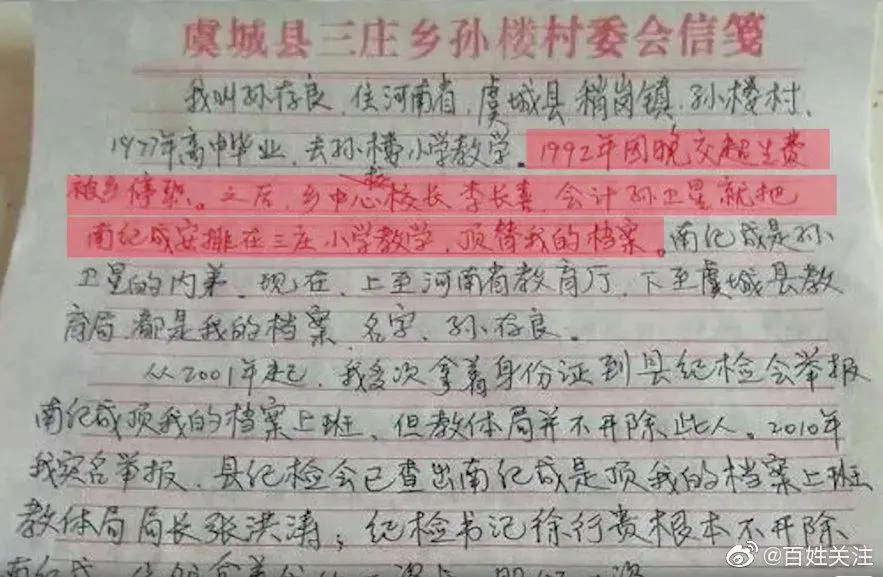 虞城县三庄乡孙楼村委会信笺
我叫孙存良,住河南省,虞城县稍岗镇,孙楼村,
1977年高中毕业,去孙楼小学教学。1992年因晚交超生费
被乡停职。之后,乡中心校校长李长喜,会计孙卫星就把
南纪成安排在三庄小学教学,顶替我的档案。南纪成是孙
卫星的内弟,现在,上至河南省教育厅,下至虞城县教
育局,都是我的档案,名字,孙存良。
从2001年起,我多次拿着身份证到县纪检会举报
南纪成顶我的档案上班,但教体局并不开除此人。2010年
我实名举报,县纪检会已查出南纪成是顶我的档案上班
教体局局长张洪涛;纪检书记徐行贵根本不开除
@百姓关注